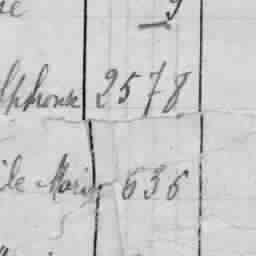 9
Alphonse 2578
ile Marie 636